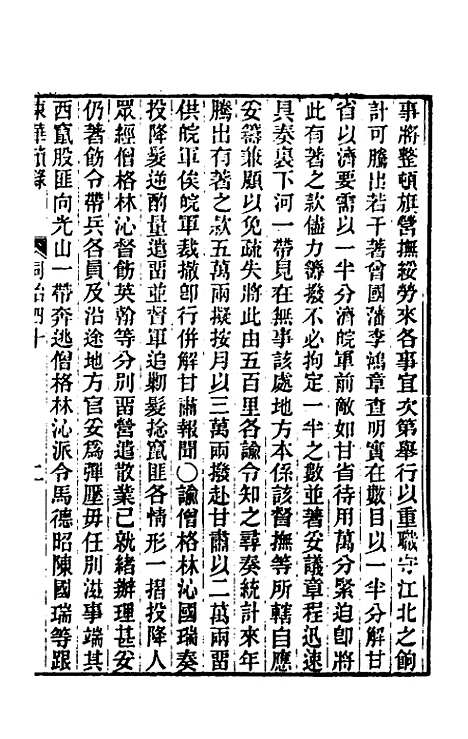 事將整頓旗營撫綏勞來各事宜次第舉行以重職守江北之餉
計可騰出若干著曾國藩李鴻章查明實在數目以一半分解甘
省以濟要需以一半分濟皖軍前敵如甘省待用萬分緊迫卽將
此有著之款儘力籌撥不必拘定一半之數並著妥議章程迅速
具奏裏下河一帶見在無事該處地方本係該督撫等所轄自應
妥籌兼顧以免疏失將此由五百里各諭令知之尋奏統計來年
騰出有著之款五萬兩擬按月以三萬兩撥赴甘肅以二萬兩留
供皖軍俟皖軍裁撤卽行併解甘肅報聞〇諭僧格林沁國瑞奏
投降髮逆酌量遣留並督軍追勦髮捻竄匪各情形一摺投降人
眾經僧格林沁督飭英翰等分別留營遣散業已就緒辦理甚妥
仍著飭令帶兵各員及沿途地方官妥爲彈壓毋任別滋事端其
西竄股匪向光山一帶奔逃僧格林沁派令馬德昭陳國瑞等跟
東華續錄
同治四十
二